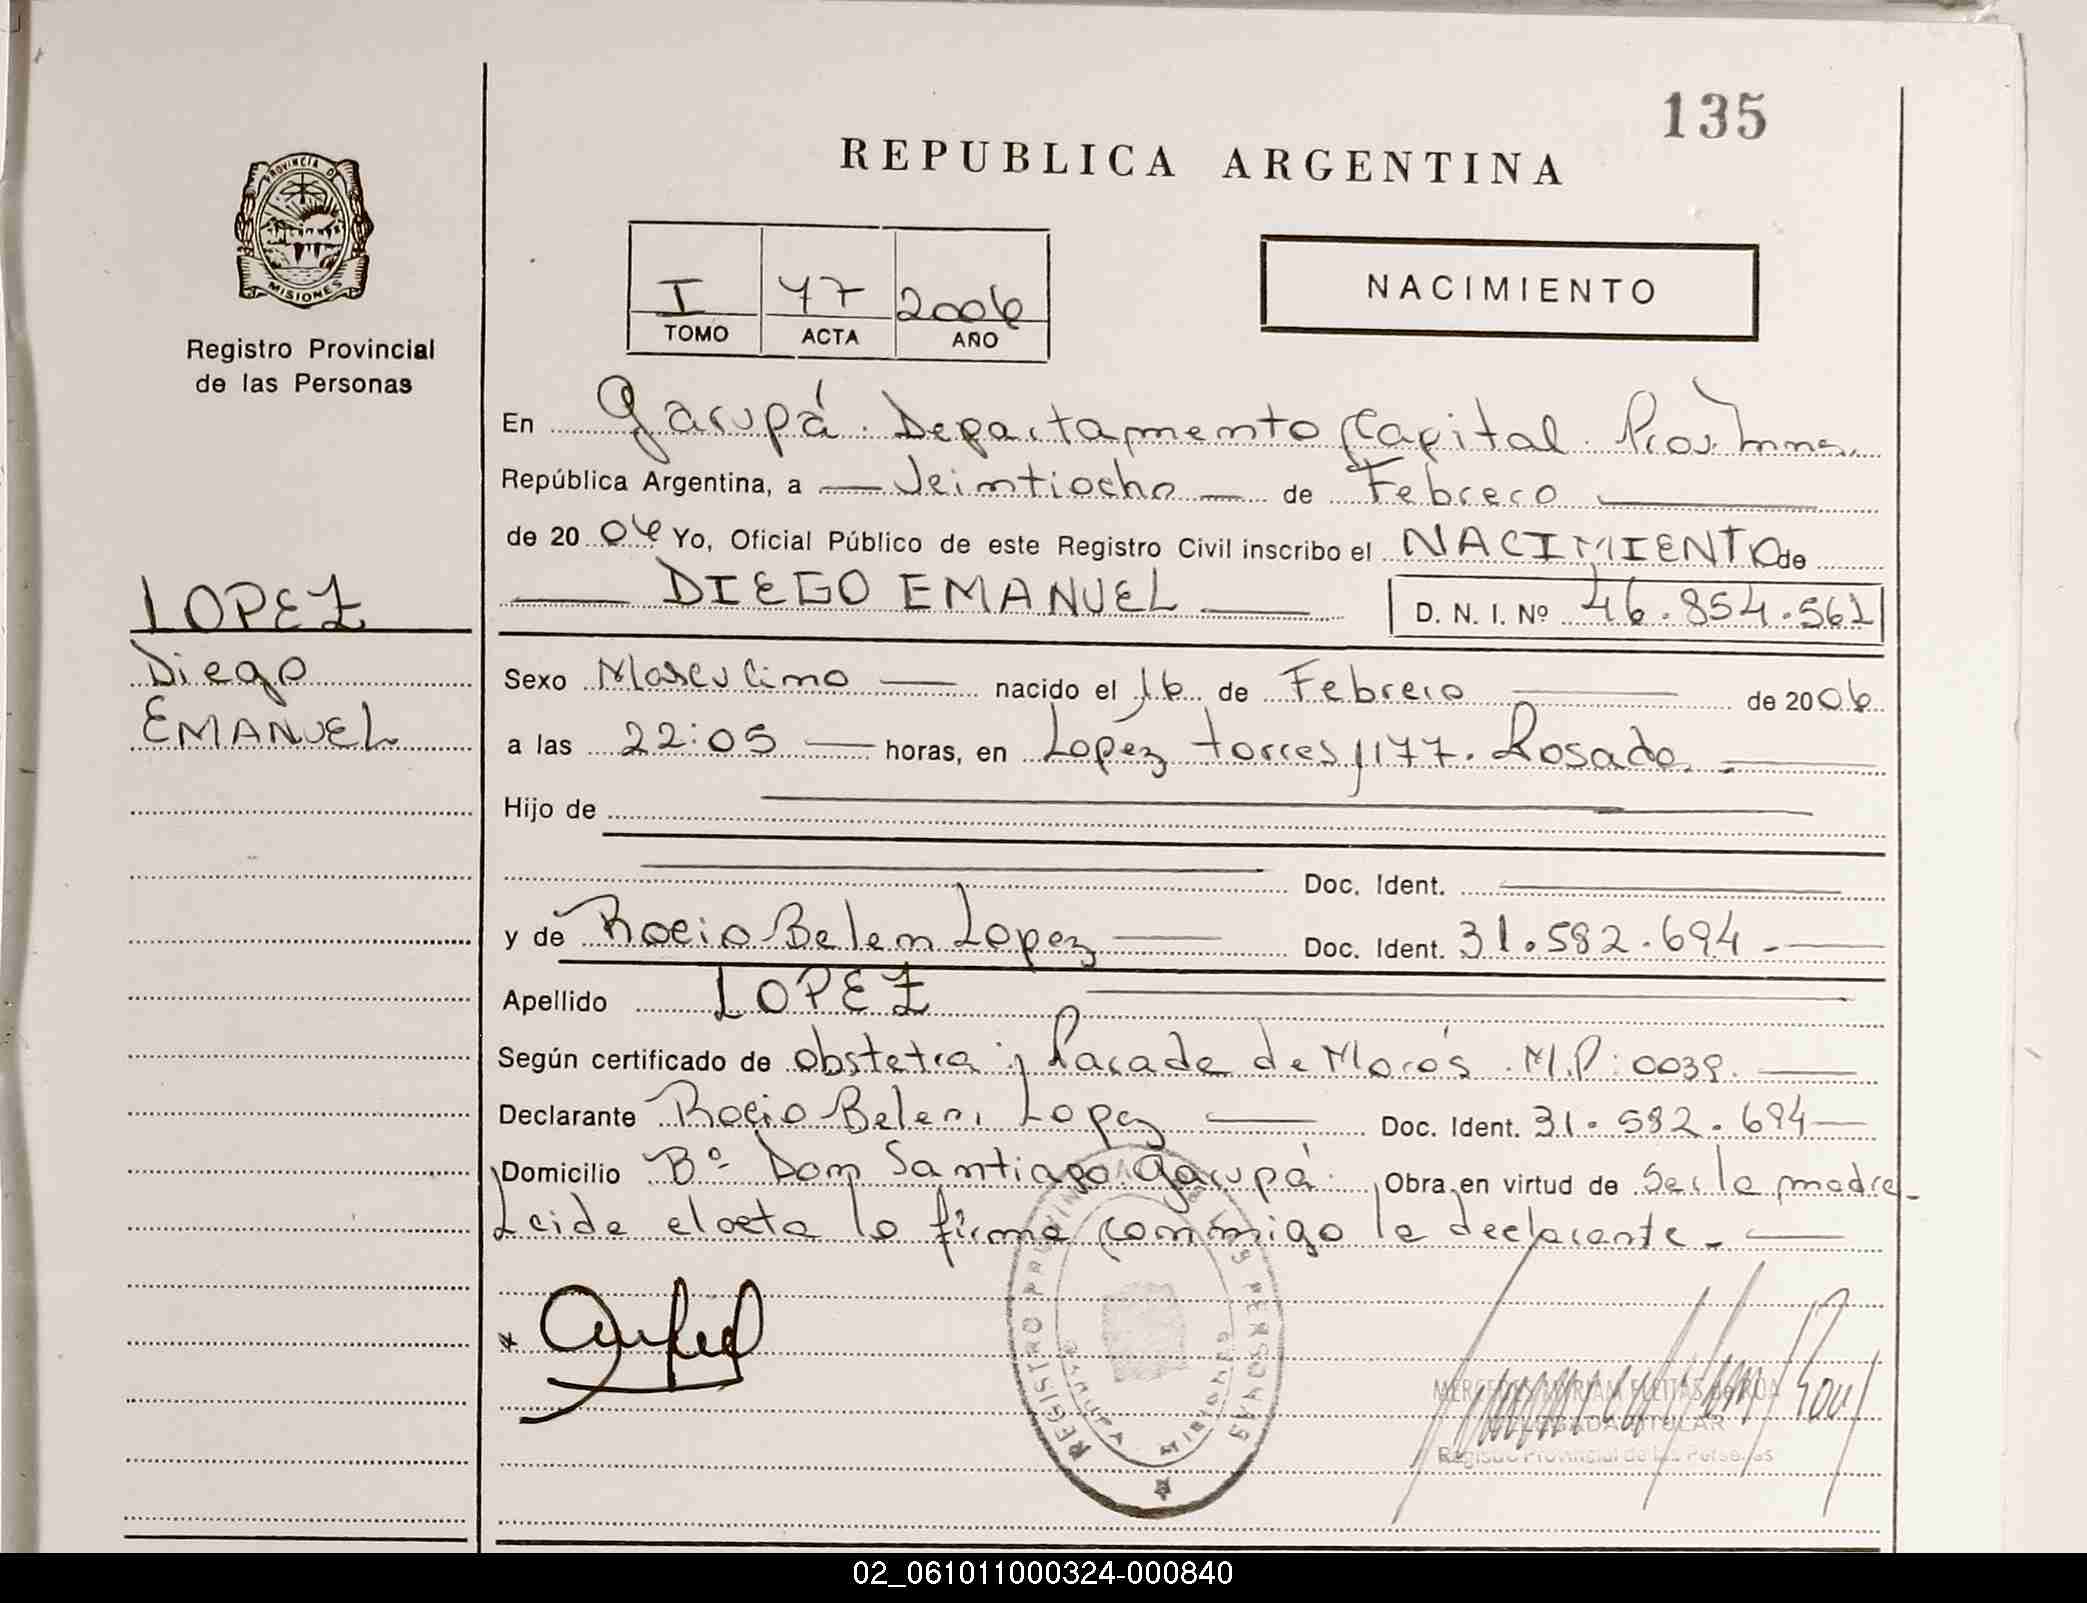 135
REPUBLICA ARGENTINA
PROVINCIA D
MISIONES
Registro Provincial
de las Personas
I 47 2006
TOMO ACTA AÑO
NACIMIENTO
En Garupá. Departamento Capital. Prov. Mnes.
República Argentina, a Veintiocho de Febrero
de 20 06 Yo, Oficial Público de este Registro Civil inscribo el NACIMIENTO de
DIEGO EMANUEL D. N. I. Nº 46.854.561
LOPEZ
Diego
EMANUEL
Sexo Masculino nacido el 16 de Febrero de 2006
a las 22:05 horas, en Lopez torres 1177. Posadas.
Hijo de
Doc. Ident.
y de Rocio Belen Lopez Doc. Ident. 31.582.694.-
Apellido LOPEZ
Según certificado de obstetra de M.P: 0039.
Declarante Rocio Belen Lopez Doc. Ident. 31.582.694
Domicilio Bº Don Santiago. Garupá. Obra en virtud de ser la madre.
Leida el acta la firma conmigo la declarante.
REGISTRO PROVINCIAL DE LAS PERSONAS
GARUPA MISIONES
MERCEDES MIRIAM FLEITAS de ROA
DELEGADA TITULAR
Registro Provincial de las Personas
02_061011000324-000840